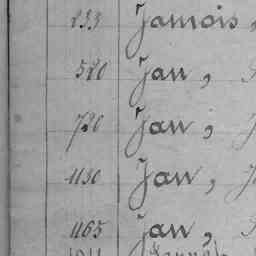 233 Jamois,
520 Jan,
720 Jan,
1130 Jan,
1165 Jan,